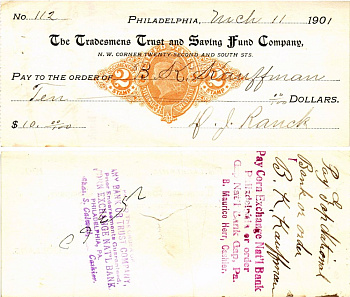 No. 112 Philadelphia, Mch 11 1901
The Tradesmens Trust and Saving Fund Company,
N. W. CORNER TWENTY-SECOND AND SOUTH STS.
PAY TO THE ORDER OF B. K. Kauffman
2 STAMP 2 STAMP
Ten DOLLARS.
$ 10.00 J. Ranck
Pay Corn Exchange Nat'l Bank
Philadelphia or order
Gap Nat'l Bank Gap, Pa.
B. Maurice Herr, Cashier.
CORN EXCHANGE NAT'L BANK
PHILADELPHIA, PA.
Cashier.
Pay
Bank or order
B. K. Kauffman